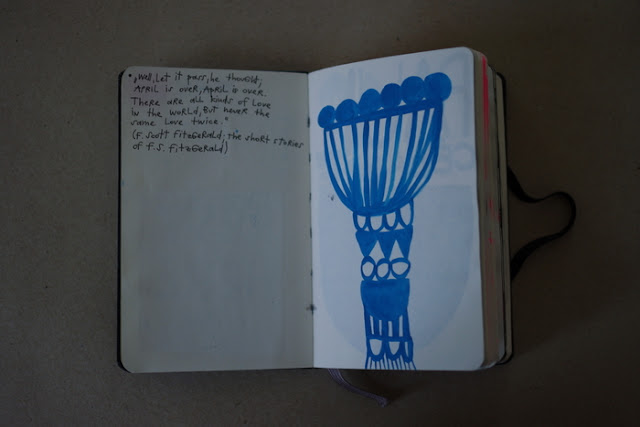 "Well, let it pass, he thought;
April is over, April is over.
There are all kinds of love
in the world, but never the
same love twice."
(F. Scott Fitzgerald; the short stories
of F.S. Fitzgerald)